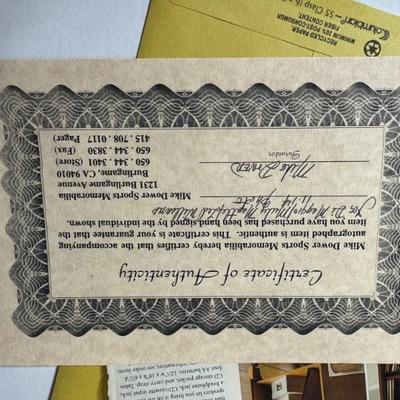 Certificate of Authenticity
Mike Dower Sports Memorabilia hereby certifies that the accompanying
autographed item is authentic. This certificate is your guarantee that the
item you have purchased has been hand signed by the individual shown.
Joe Di Maggio/Mickey Mantle
11x14 Photo
Mike Dower Sports Memorabilia
1231 Burlingame Avenue
Burlingame, CA 94010
650 . 344 . 3401 (Store)
650 . 344 . 3830 (Fax)
415 . 708 . 0117 Pager)
Mike Dower
Columbian
55 Clasp (6
RECYCLED PAPER
MINIMUM 20% POST-CONSUMER
FIBER CONTENT.
CD storage pocket, and carry strap. Takes
four AA batteries.